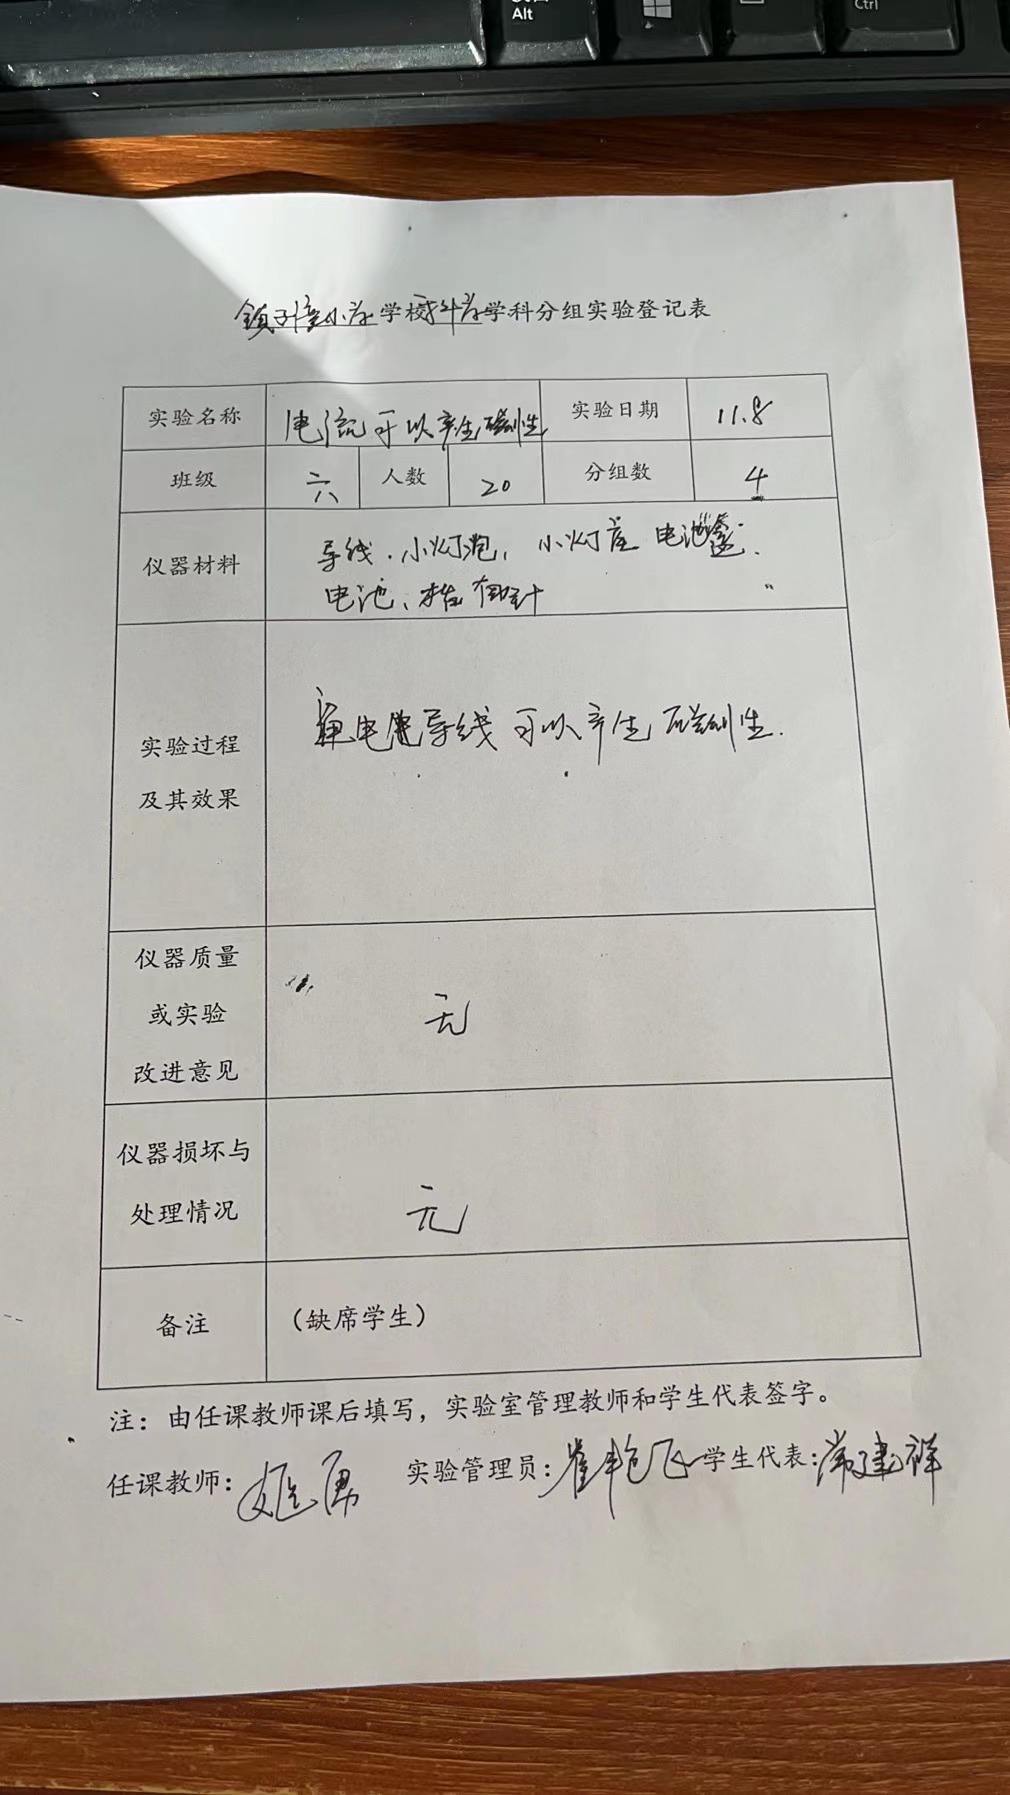 Alt
Ctrl
小学学校科学学科分组实验登记表
实验名称 电流可以产生磁性 实验日期 11.8
班级 六 人数 20 分组数 4
仪器材料 导线、小灯泡、小灯座 电池盒、
电池、指南针
实验过程
及其效果
电 导线可以产生磁性.
仪器质量
或实验
改进意见
无
仪器损坏与
处理情况
无
备注 (缺席学生)
注：由任课教师课后填写，实验室管理教师和学生代表签字。
任课教师: 姬勇 实验管理员: 崔艳飞 学生代表: 常建祥